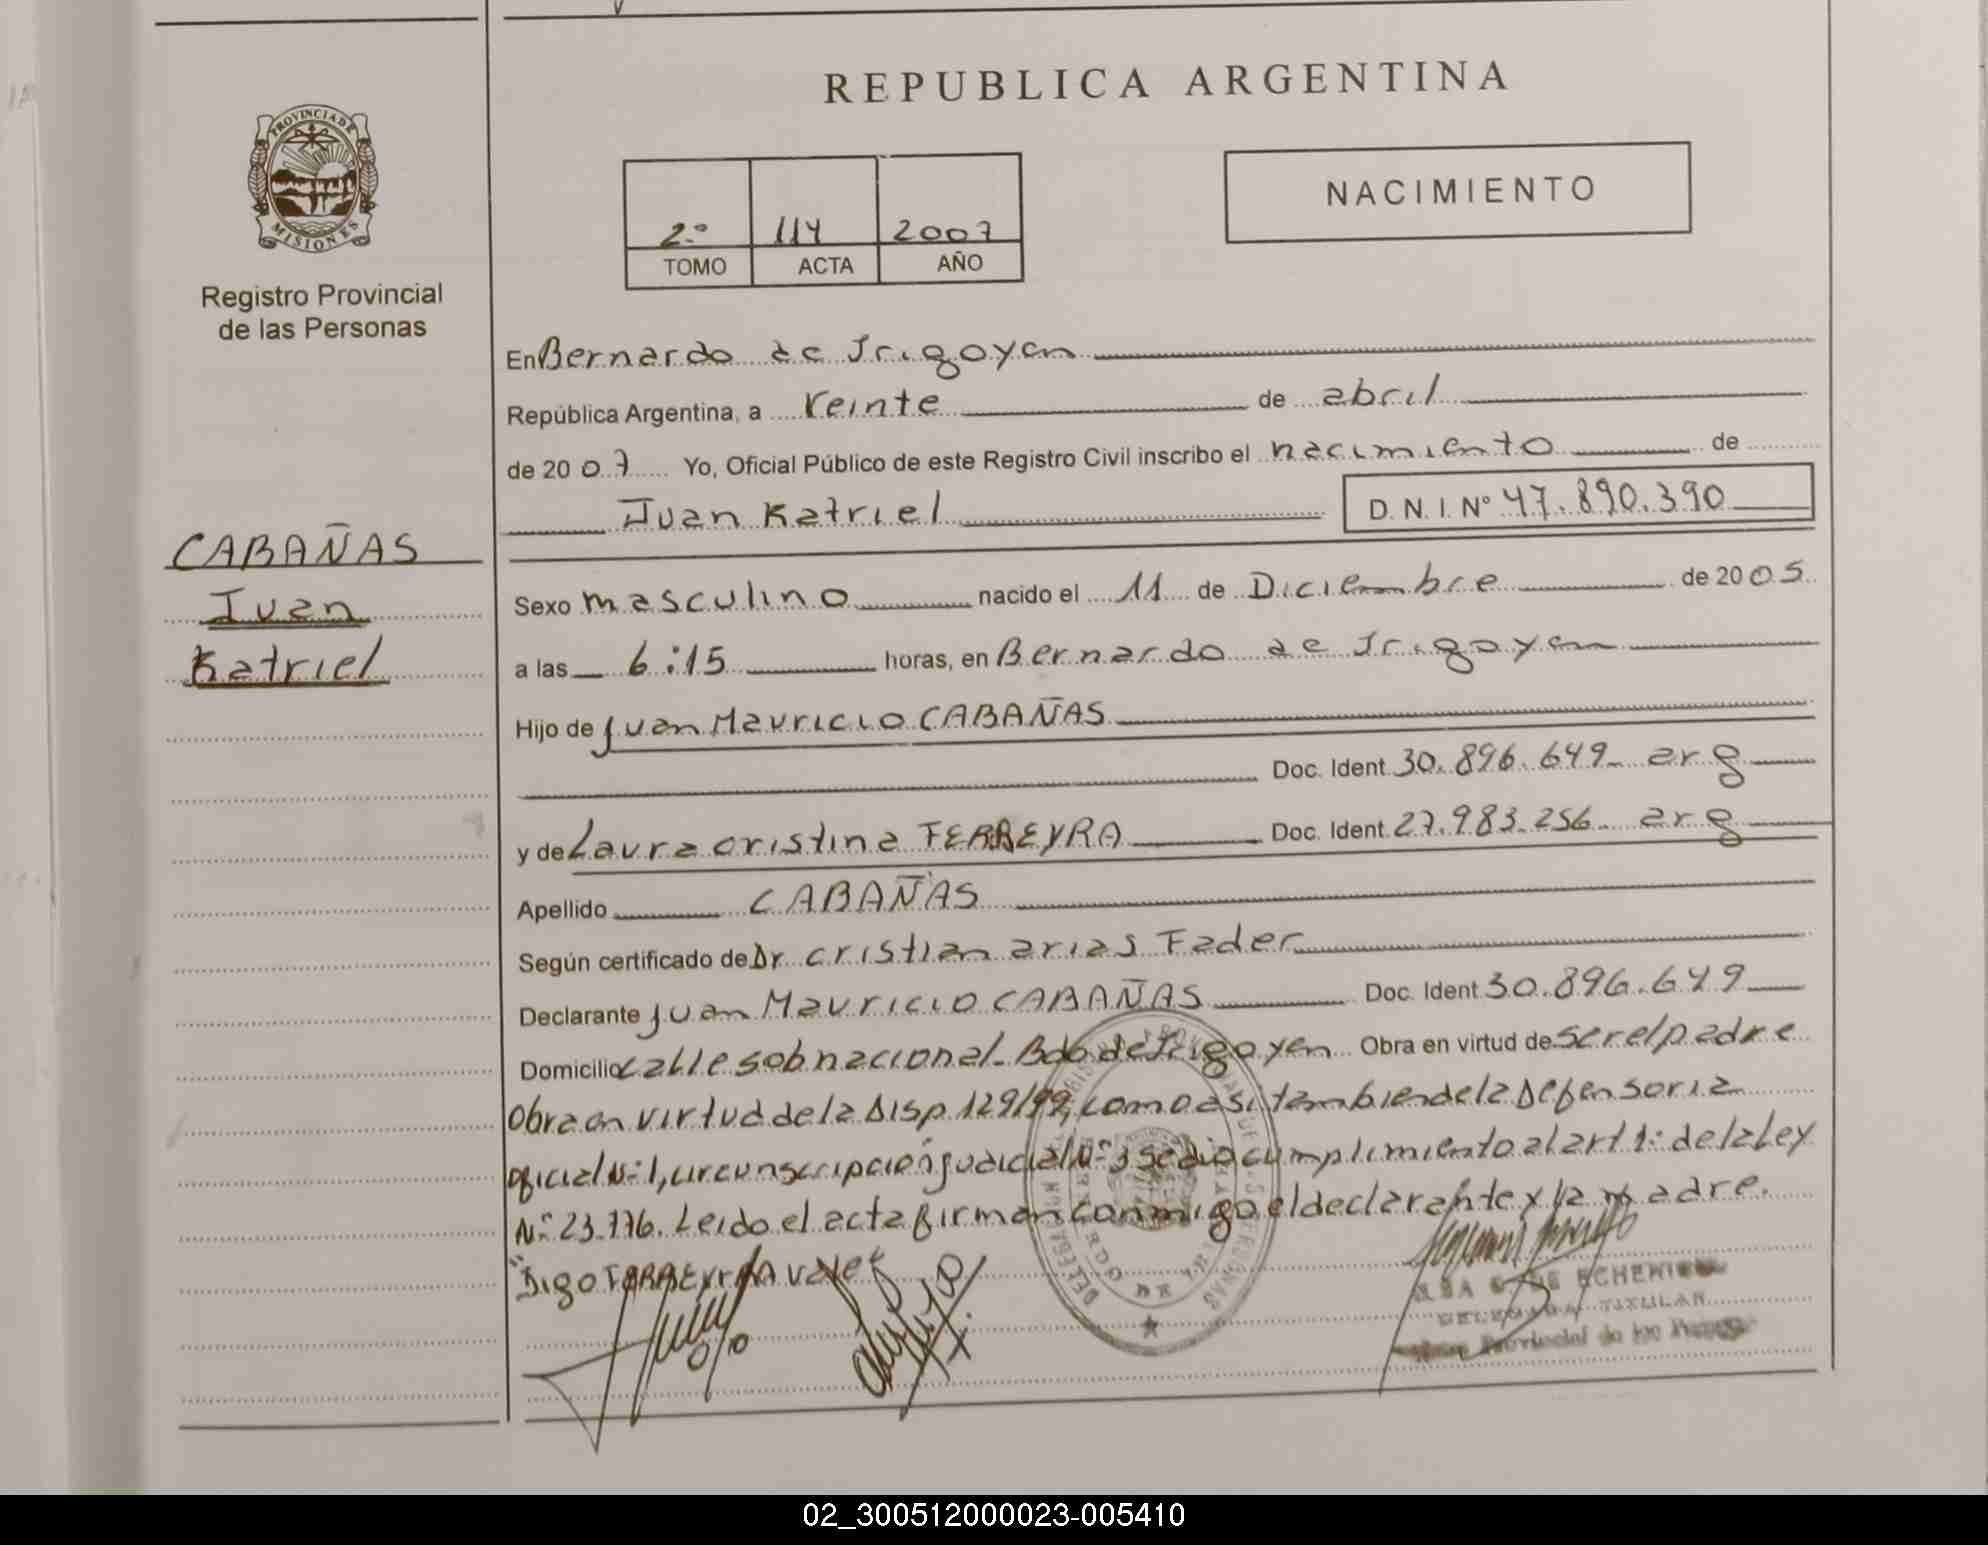 REPUBLICA ARGENTINA
PROVINCIA DE
MISIONES
Registro Provincial
de las Personas
NACIMIENTO
2º 114 2007
TOMO ACTA AÑO
En Bernardo de Irigoyen
República Argentina, a veinte de abril
de 2007 Yo, Oficial Público de este Registro Civil inscribo el nacimiento de
Juan Katriel D.N.I. Nº 47.890.390
CABAÑAS
Juan
Katriel
Sexo masculino nacido el 11 de Diciembre de 2005
a las 6:15 horas, en Bernardo de Irigoyen
Hijo de Juan Mauricio CABAÑAS
Doc. Ident. 30.896.649 arg
y de Laura cristina FERREYRA Doc. Ident. 27.983.256 arg
Apellido CABAÑAS
Según certificado de Dr cristian arias Fader
Declarante Juan Mauricio CABAÑAS Doc. Ident. 30.896.649
Domicilio calle sob nacional - Bdo de Irigoyen Obra en virtud de ser el padre
Obra en virtud de la Disp. 129/99, como asi tambien de la Defensoria
oficial Nº 1, circunscripción judicial Nº 3 se dio cumplimiento al art 1º de la Ley
Nº 23.776. Leido el acta firman conmigo el declarante y la madre.
"Digo FERREYRA Vale"
DE ECHE
DELEGADA TITULAR
Provincial de las
02_300512000023-005410